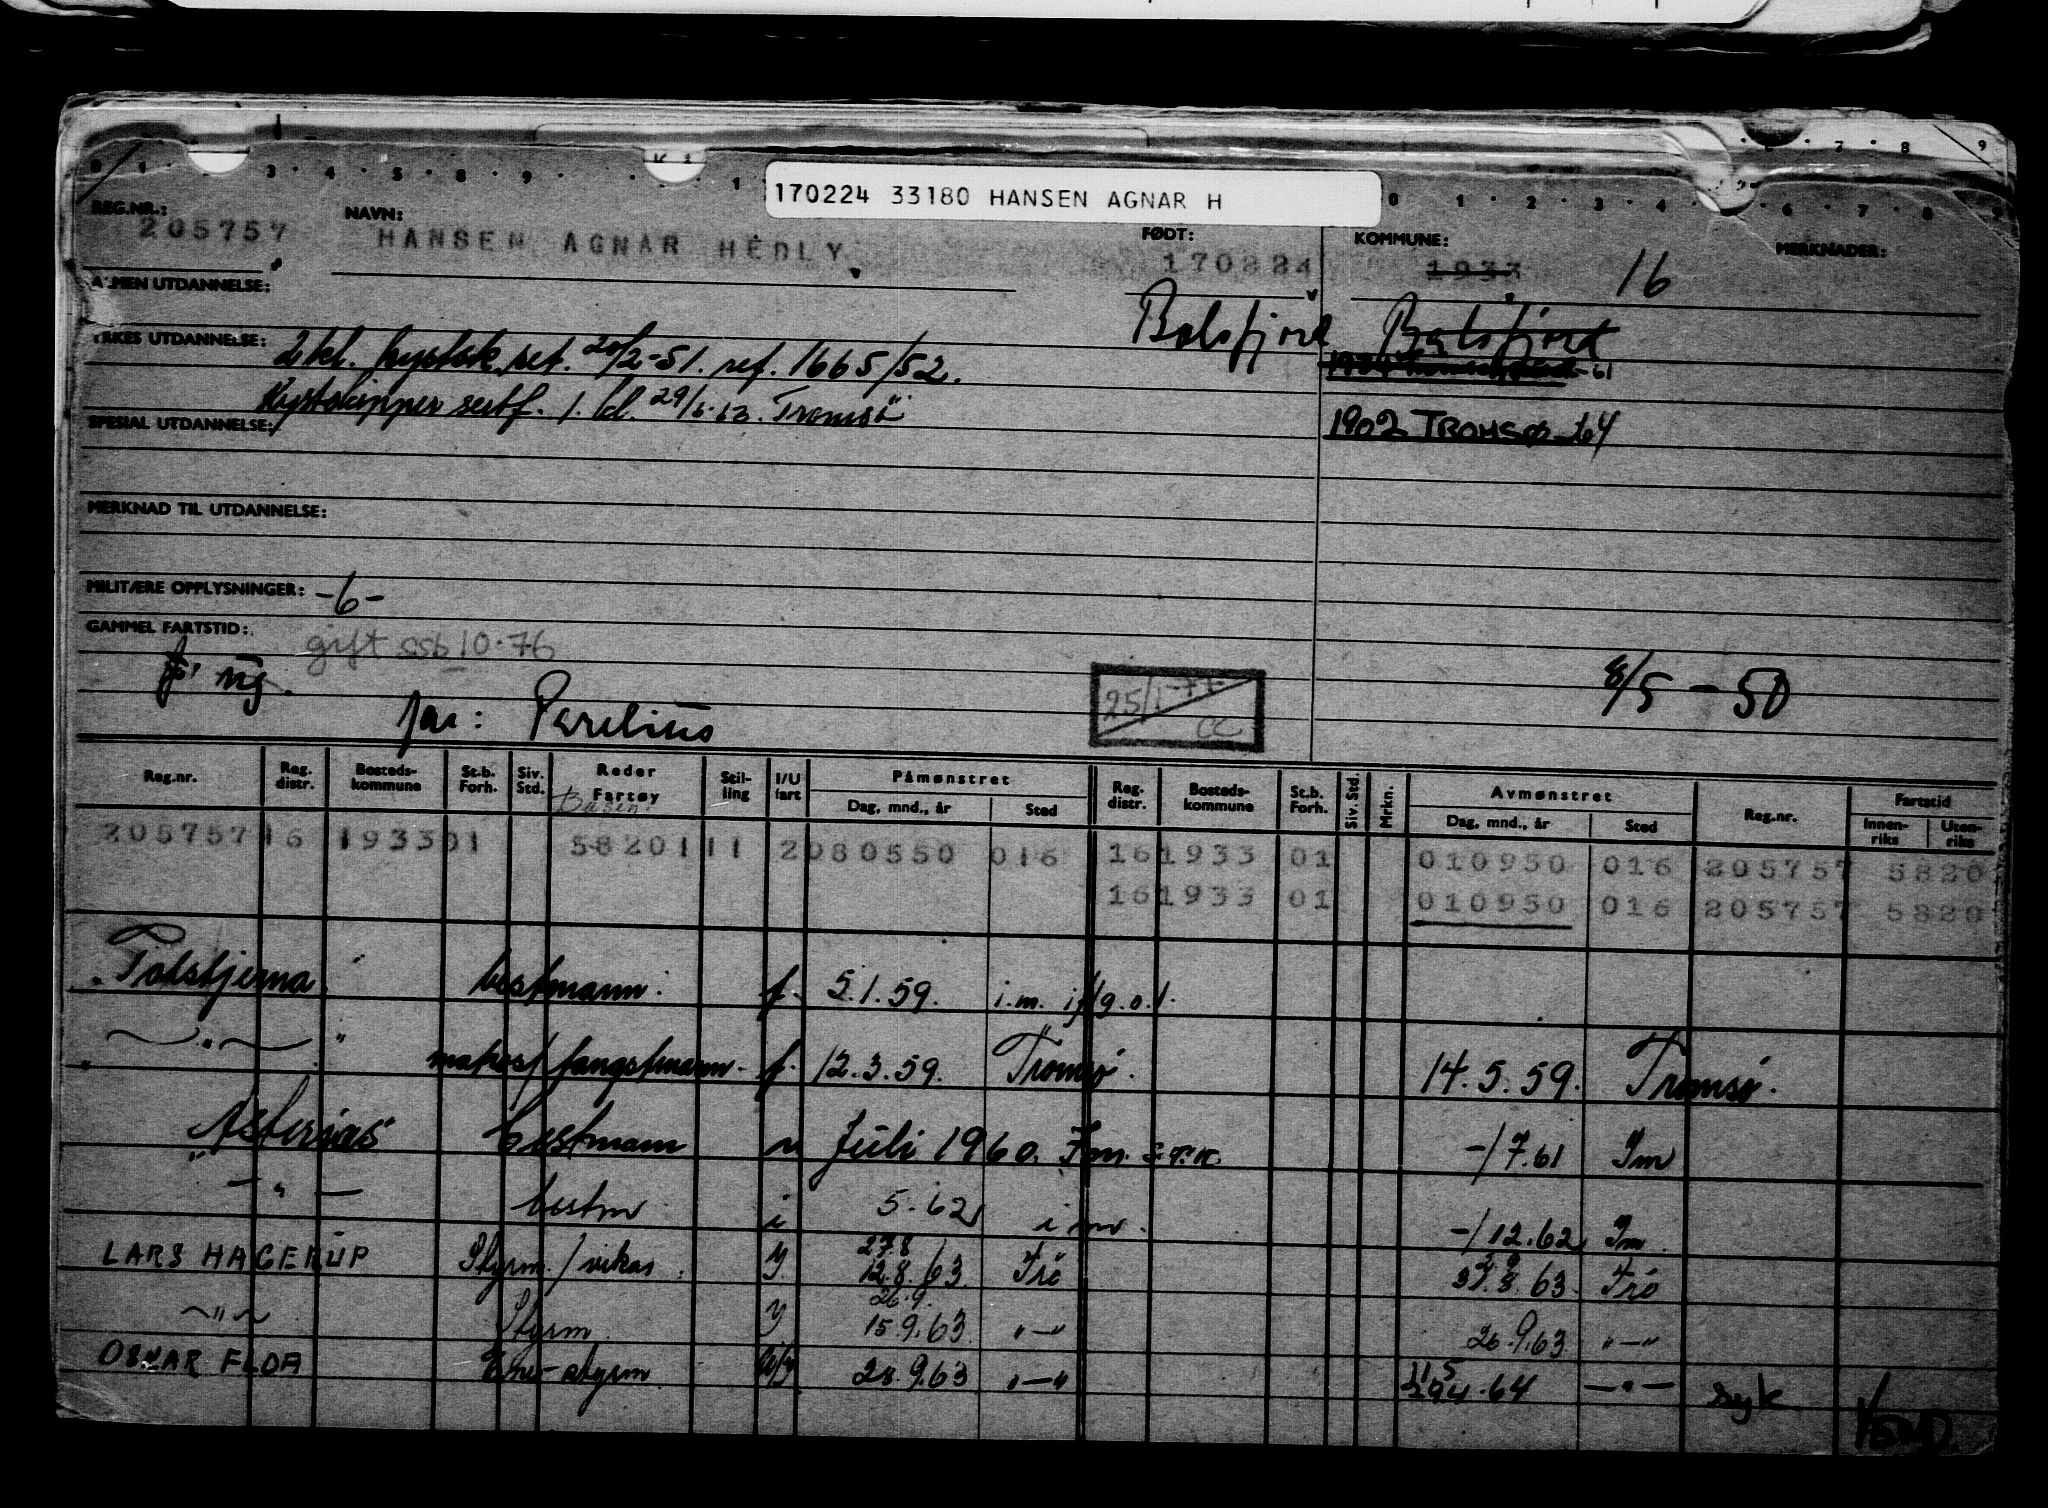 170224 33180 HANSEN AGNAR H
REG.NR.: NAVN: FØDT: KOMMUNE: MERKNADER:
205757 HANSEN AGNAR HEDLY 170224 1933 16
Balsfjord Balsfjord
ALMEN UTDANNELSE:
YRKES UTDANNELSE: 2 kl. kystsk. set. 20/2-51. ref. 1665/52.
Kystskipper sertf. 1. kl. 29/6.63. Tromsö
1902 TROMSØ -64
SPESIAL UTDANNELSE:
MERKNAD TIL UTDANNELSE:
MILITÆRE OPPLYSNINGER: -6-
GAMMEL FARTSTID:
gift ssb 10.76
far: Parelius
25/1-77- CC
8/5 - 50
Reg.nr. Reg. distr. Bosteds-kommune St.b. Forh. Siv. Std. Reder Fartøy Stil-ling I/U fart Påmønstret Dag, mnd., år Sted Reg. distr. Bosteds-kommune St.b. Forh. Siv. Std. Mrkn. Avmønstret Dag, mnd., år Sted Reg.nr. Fartstid Innen-riks Uten-riks
205757 16 1933 01 5820111 2 080550 016 16 1933 01 010950 016 205757 5820
16 1933 01 010950 016 205757 5820
bestmann f. 5.1.59. i.m. iflg.o.l.
" fangstmann f. 12.3.59. Tromsö. 14.5.59. Tromsö.
"Asterias" bestmann u Juli 1960. Im. -/7.61 Im
— " — bestm i 5.62 i m. -/12.62 Im
LARS HAGERUP Styrm./vikar Y 27.8 12.8.63 Trö 8.63 Trö
~"~ Styrm. Y 26.9. 15.9.63 "—" 26.9.63 "—"
OSNAR FLOA Ene-styrm 28.9.63 "—" 11.5 29.4.64 —"— syk
VEND